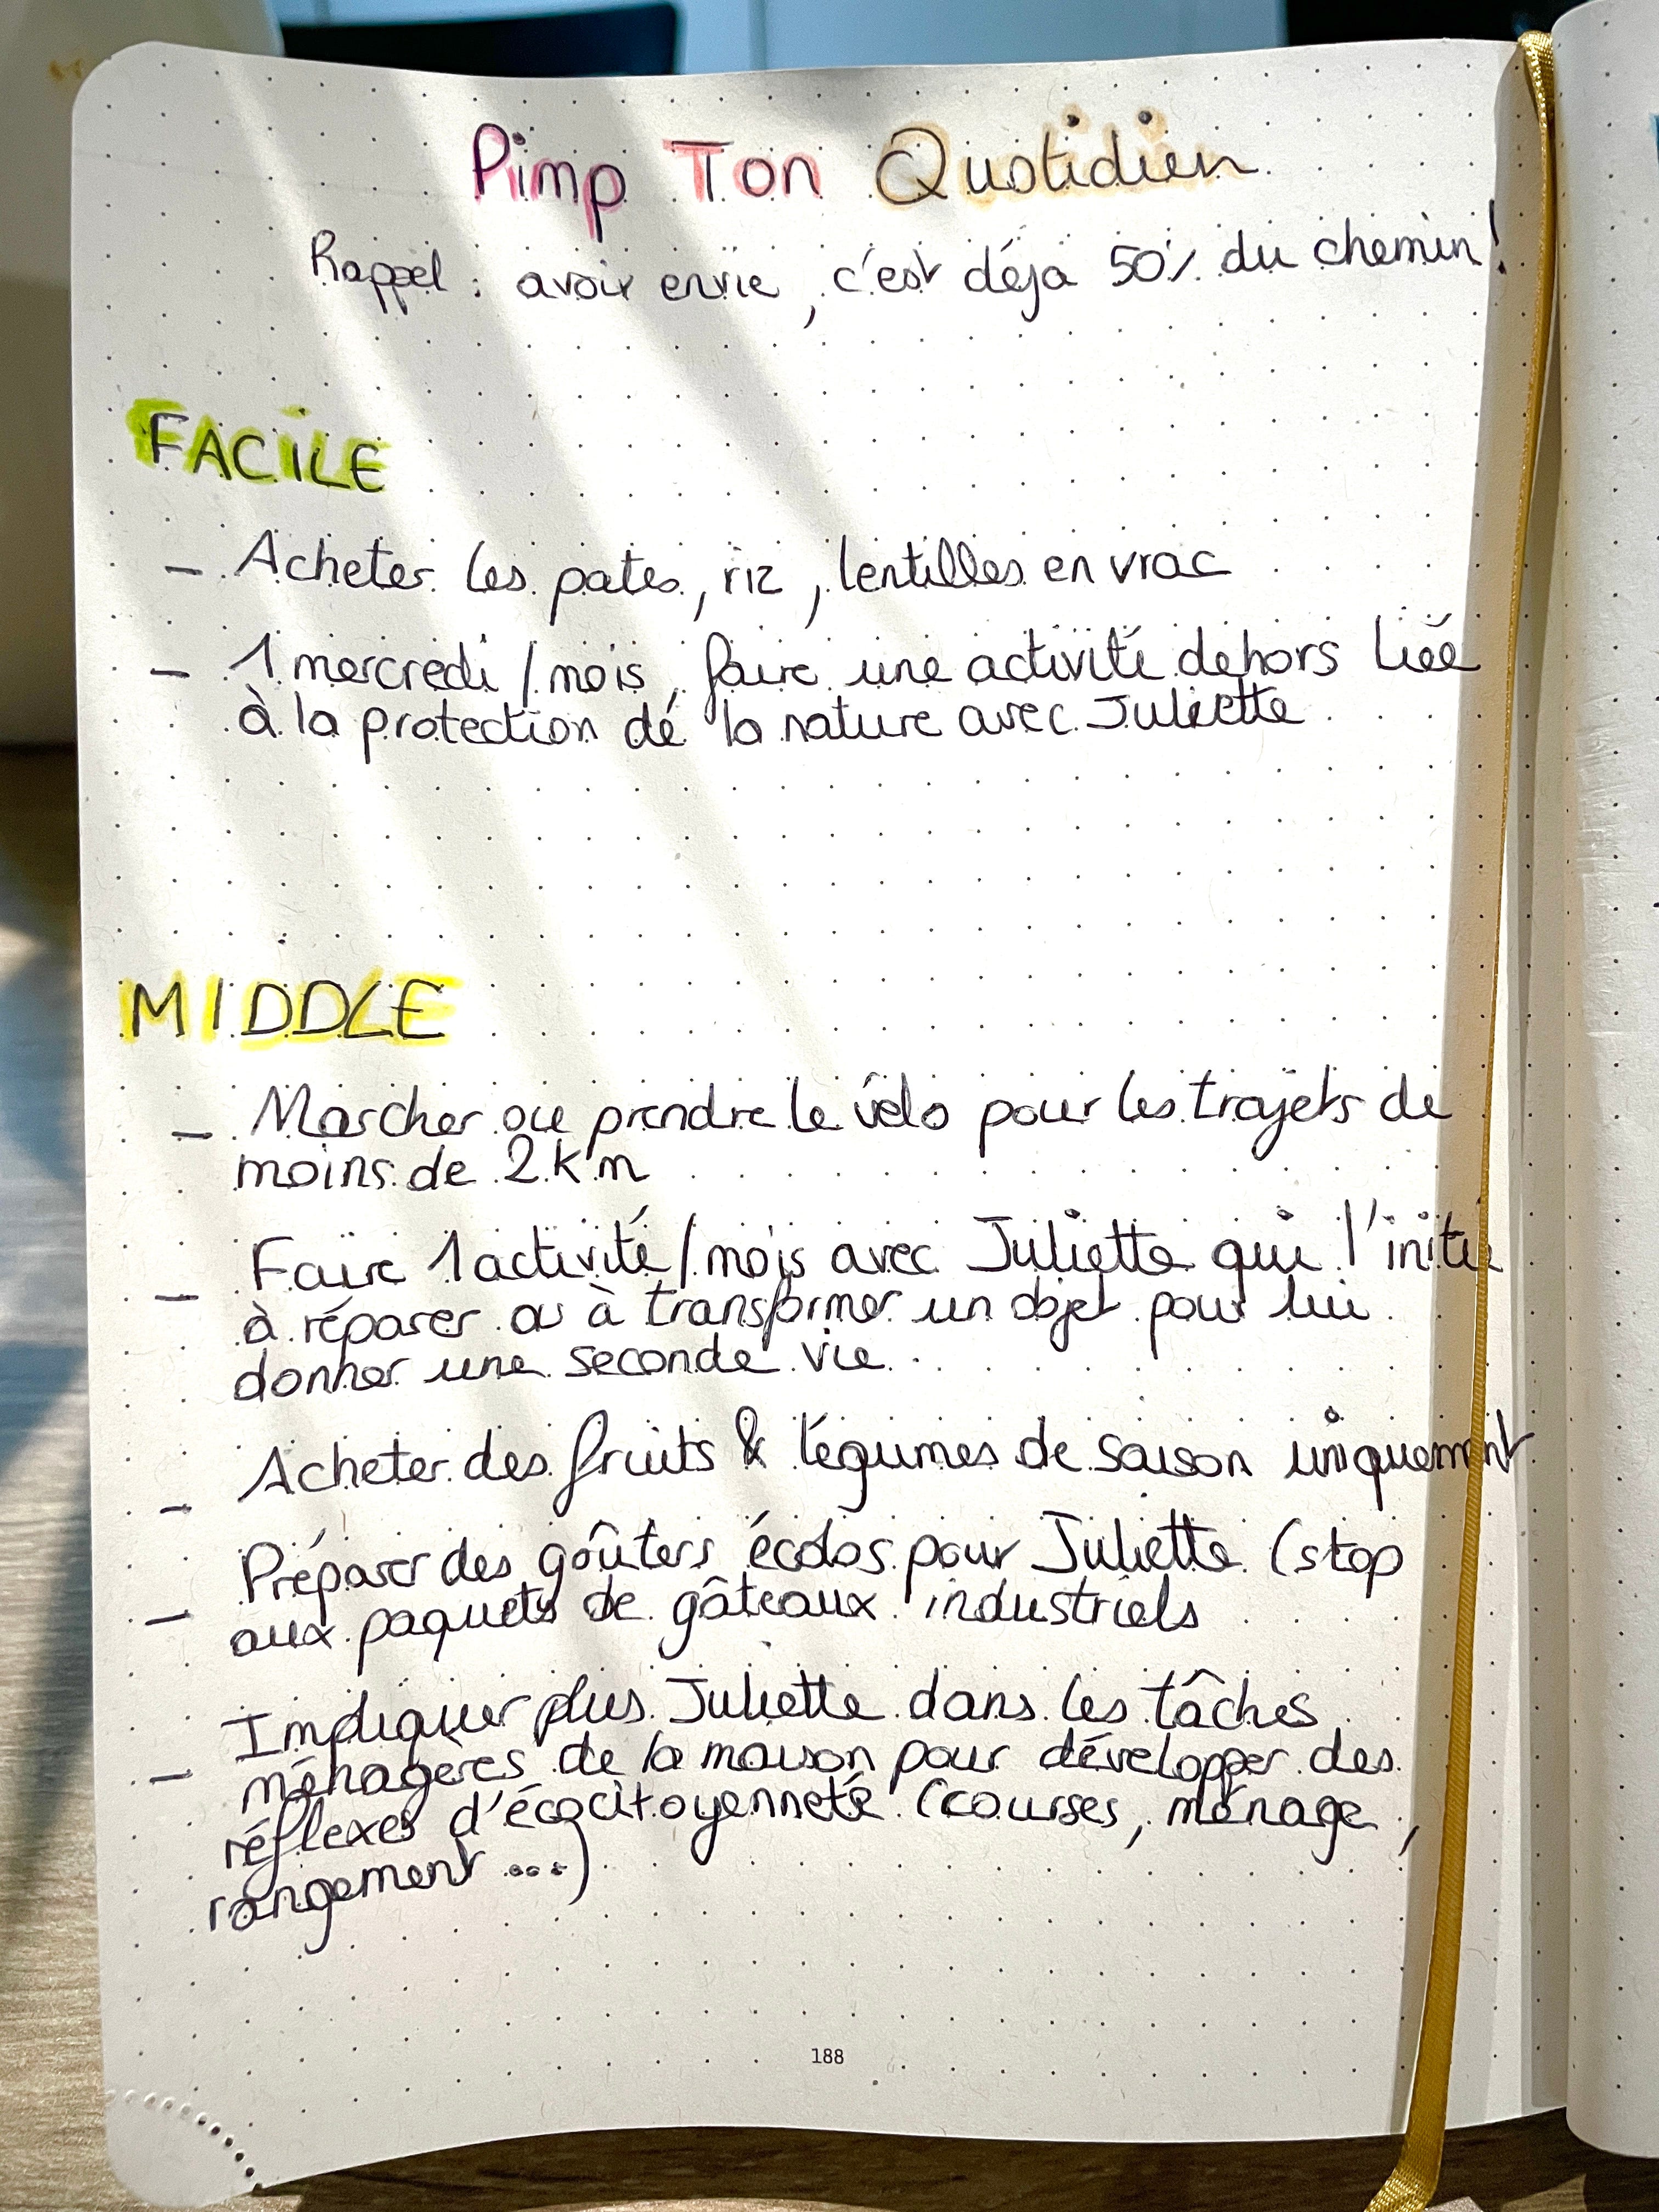 Pimp Ton Quotidien
Rappel : avoir envie, c'est déjà 50% du chemin !
FACILE
- Acheter les pates, riz, lentilles en vrac
- 1 mercredi / mois, faire une activité dehors liée
à la protection de la nature avec Juliette
MIDDLE
- Marcher ou prendre le vélo pour les trajets de
moins de 2 km
- Faire 1 activité / mois avec Juliette qui l'initie
à réparer ou à transformer un objet pour lui
donner une seconde vie
- Acheter des fruits & légumes de saison uniquement
- Préparer des goûters écolos pour Juliette (stop
aux paquets de gâteaux industriels
- Impliquer plus Juliette dans les tâches
ménagères de la maison pour développer des
réflexes d'écocitoyenneté (courses, ménage,
rangement ...)
188